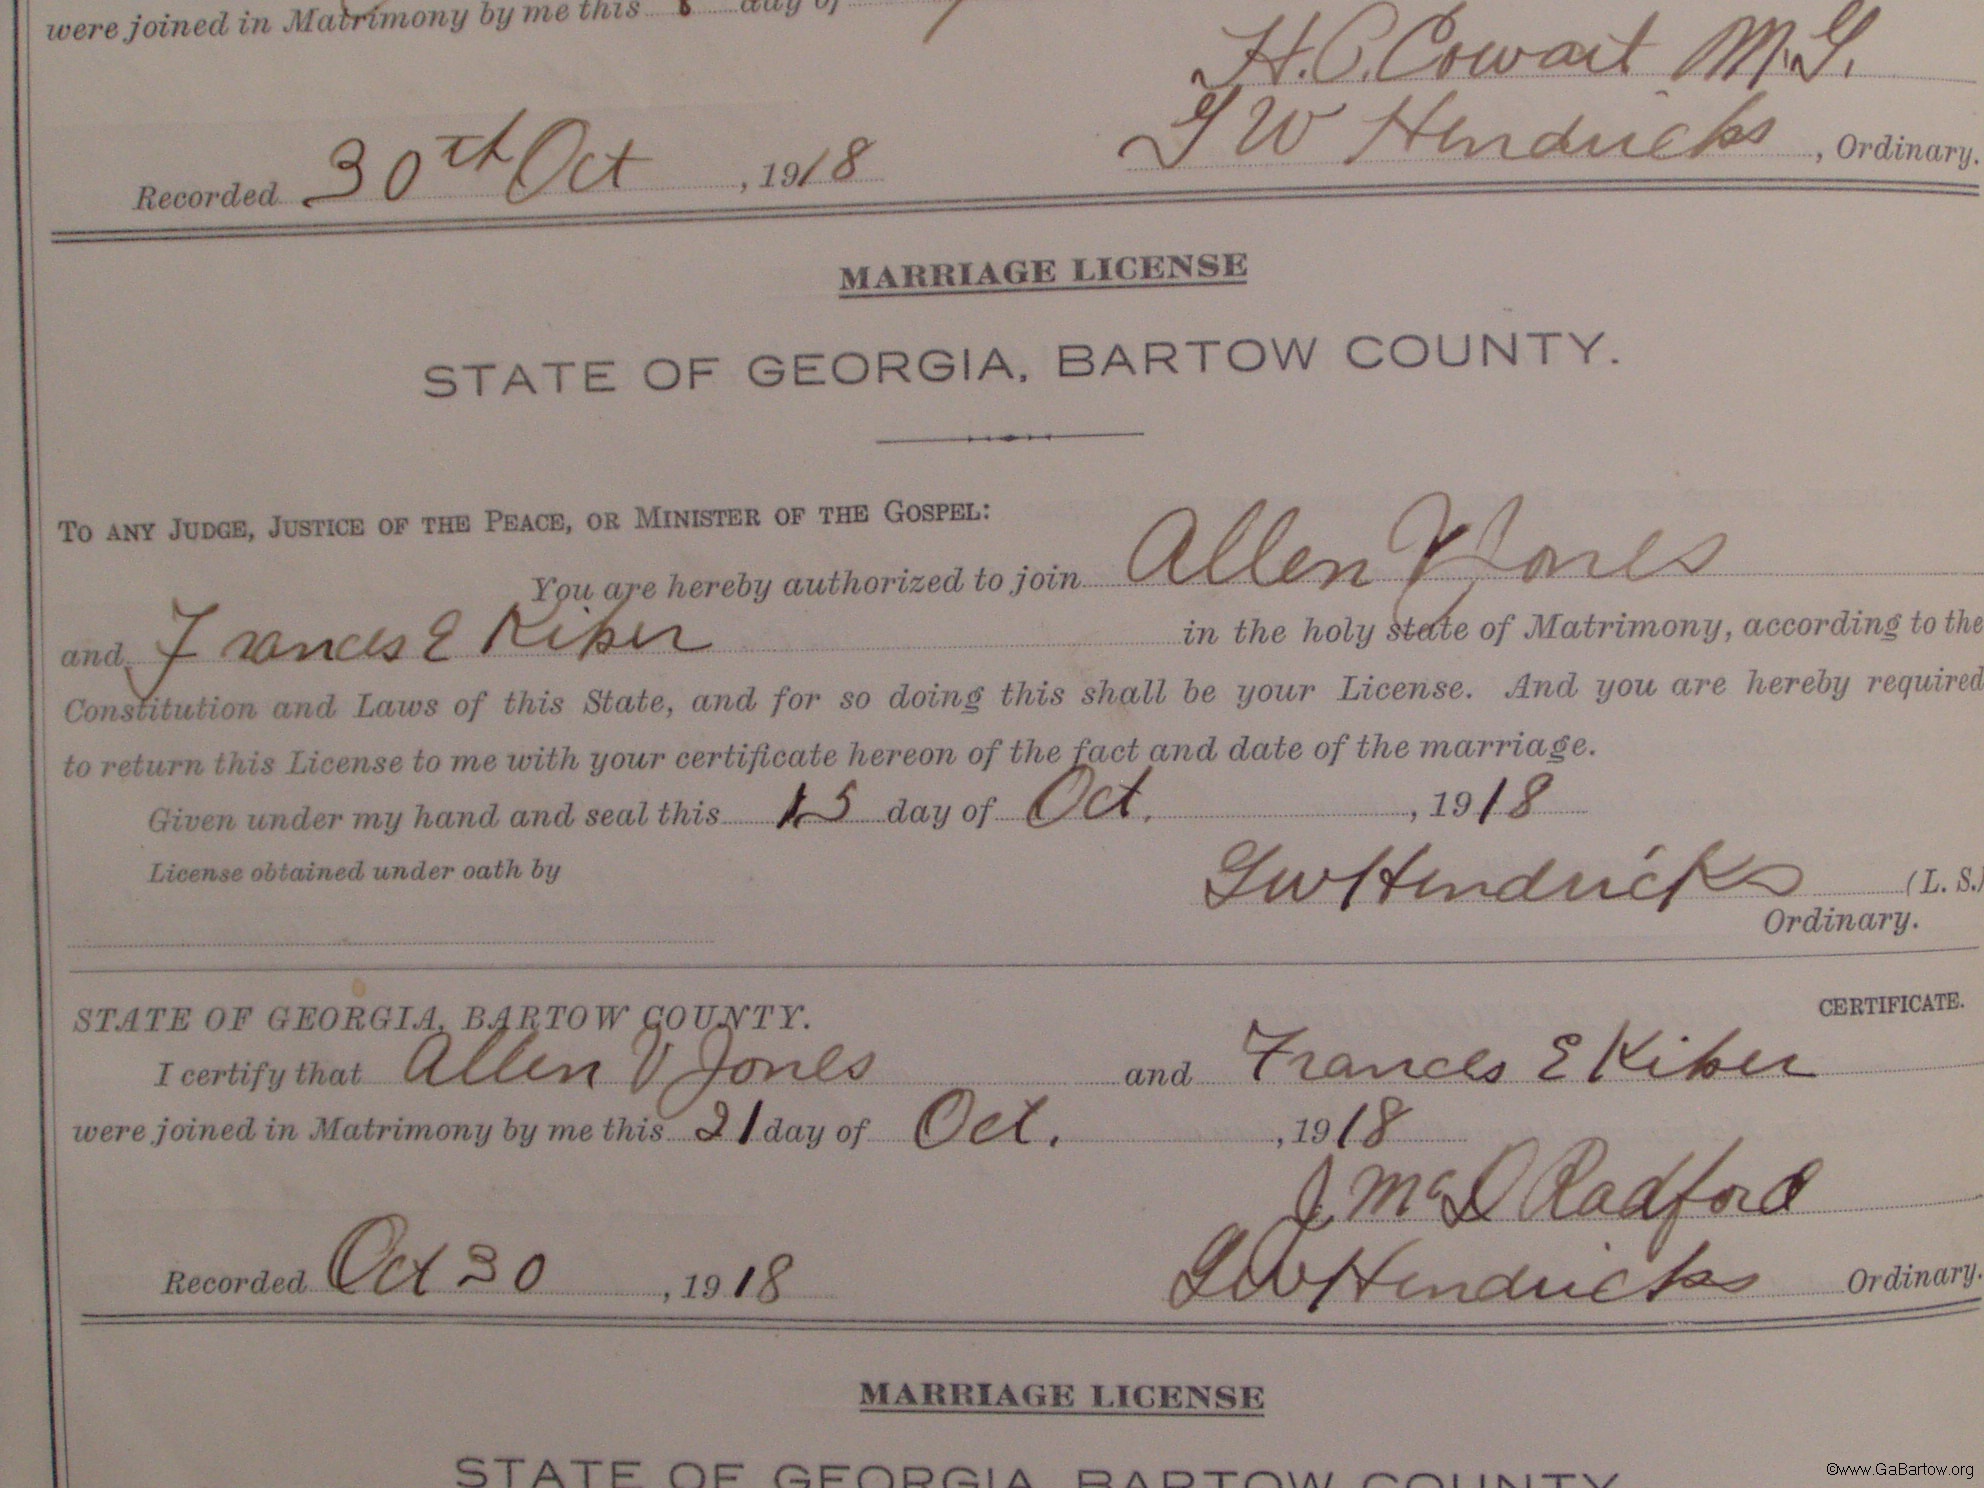 were joined in Matrimony by me this 8 day of
H. C. Cowart M.G.
Recorded 30th Oct, 1918 G W Hendricks, Ordinary.
MARRIAGE LICENSE
STATE OF GEORGIA, BARTOW COUNTY.
TO ANY JUDGE, JUSTICE OF THE PEACE, OR MINISTER OF THE GOSPEL:
You are hereby authorized to join Allen V Jones
and Frances E Kiker in the holy state of Matrimony, according to the
Constitution and Laws of this State, and for so doing this shall be your License. And you are hereby required
to return this License to me with your certificate hereon of the fact and date of the marriage.
Given under my hand and seal this 15 day of Oct., 1918
License obtained under oath by
G W Hendricks (L. S.)
Ordinary.
STATE OF GEORGIA, BARTOW COUNTY. CERTIFICATE.
I certify that Allen V Jones and Frances E Kiker
were joined in Matrimony by me this 21 day of Oct., 1918
J. McD Radford
Recorded Oct 30, 1918 G W Hendricks Ordinary.
MARRIAGE LICENSE
STATE OF GEORGIA, BARTOW COUNTY.
©www.GaBartow.org